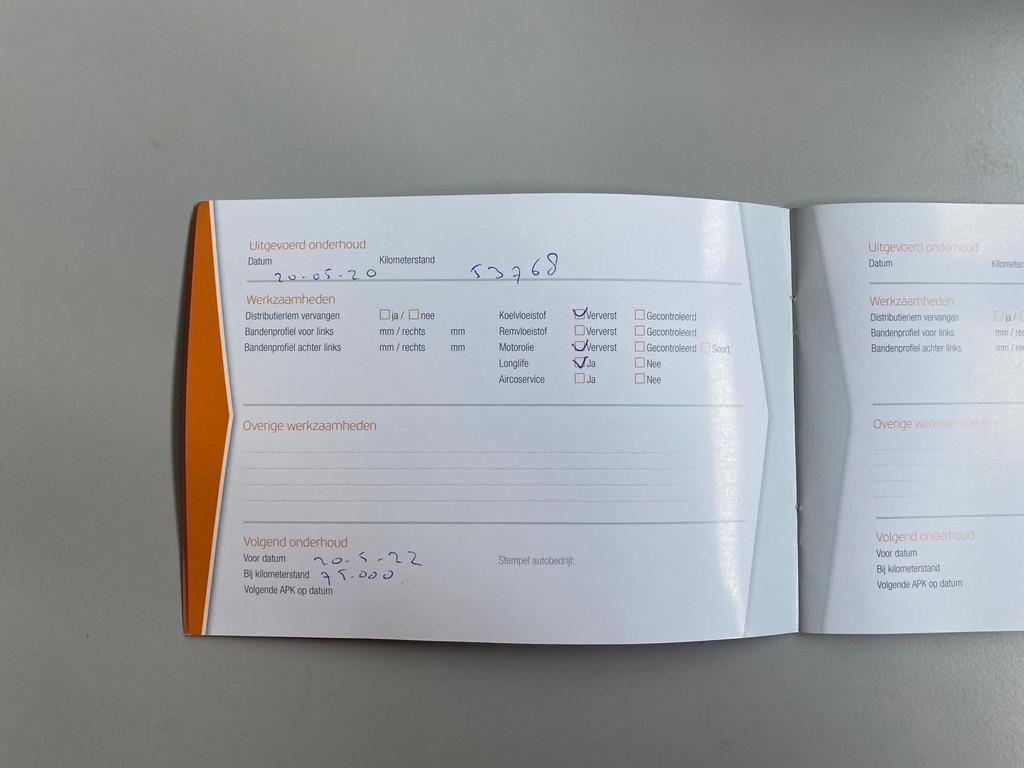 Uitgevoerd onderhoud
Datum 20-05-20 Kilometerstand 53768
Werkzaamheden
Distributieriem vervangen ja / nee Koelvloeistof Ververst Gecontroleerd
Bandenprofiel voor links mm / rechts mm Remvloeistof Ververst Gecontroleerd
Bandenprofiel achter links mm / rechts mm Motorolie Ververst Gecontroleerd Soort
Longlife Ja Nee
Aircoservice Ja Nee
Overige werkzaamheden
Volgend onderhoud
Voor datum 20-5-22 Stempel autobedrijf:
Bij kilometerstand 75.000
Volgende APK op datum
Uitgevoerd onderhoud
Datum
Werkzaamheden
Distributieriem vervangen ja /
Bandenprofiel voor links
Bandenprofiel achter links
Overige
Volgend onderhoud
Voor datum
Bij kilometerstand
Volgende APK op datum